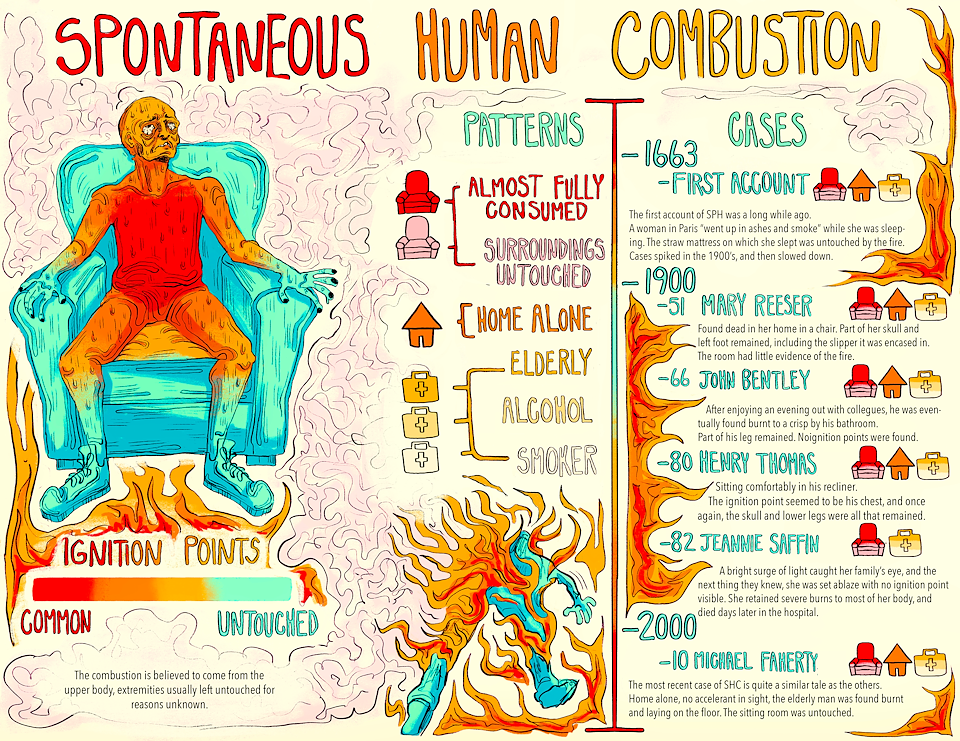 SPONTANEOUS HUMAN COMBUSTION
IGNITION POINTS
COMMON
UNTOUCHED
The combustion is believed to come from the
upper body, extremities usually left untouched for
reasons unknown.
PATTERNS
ALMOST FULLY
CONSUMED
SURROUNDINGS
UNTOUCHED
HOME ALONE
ELDERLY
ALCOHOL
SMOKER
CASES
-1663
-FIRST ACCOUNT
The first account of SPH was a long while ago.
A woman in Paris "went up in ashes and smoke" while she was sleep-
ing. The straw mattress on which she slept was untouched by the fire.
Cases spiked in the 1900's, and then slowed down.
-1900
-51 MARY REESER
Found dead in her home in a chair. Part of her skull and
left foot remained, including the slipper it was encased in.
The room had little evidence of the fire.
-66 JOHN BENTLEY
After enjoying an evening out with collegues, he was even-
tually found burnt to a crisp by his bathroom.
Part of his leg remained. Noignition points were found.
-80 HENRY THOMAS
Sitting comfortably in his recliner.
The ignition point seemed to be his chest, and once
again, the skull and lower legs were all that remained.
-82 JEANNIE SAFFIN
A bright surge of light caught her family's eye, and the
next thing they knew, she was set ablaze with no ignition point
visible. She retained severe burns to most of her body, and
died days later in the hospital.
-2000
-10 MICHAEL FAHERTY
The most recent case of SHC is quite a similar tale as the others.
Home alone, no accelerant in sight, the elderly man was found burnt
and laying on the floor. The sitting room was untouched.